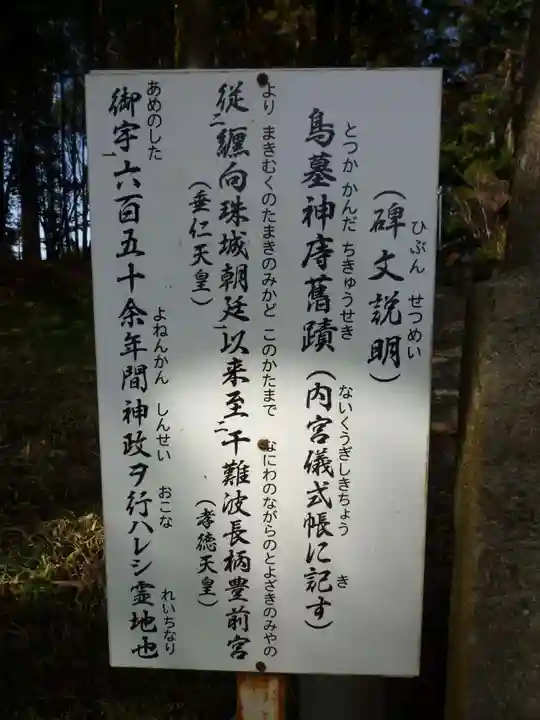 ひぶん せつめい
（碑文説明）
とつか かんだ ちきゅうせき ないくうぎしきちょう き
鳥墓神庤舊蹟（内宮儀式帳に記す）
より まきむくのたまきのみかど このかたまで なにわのながらのとよさきのみやの
従二纏向珠城朝廷一以来至二于難波長柄豊前宮
（垂仁天皇） （孝徳天皇）
あめのした よねんかん しんせい おこな れいちなり
御宇一六百五十余年間神政ヲ行ハレシ霊地也